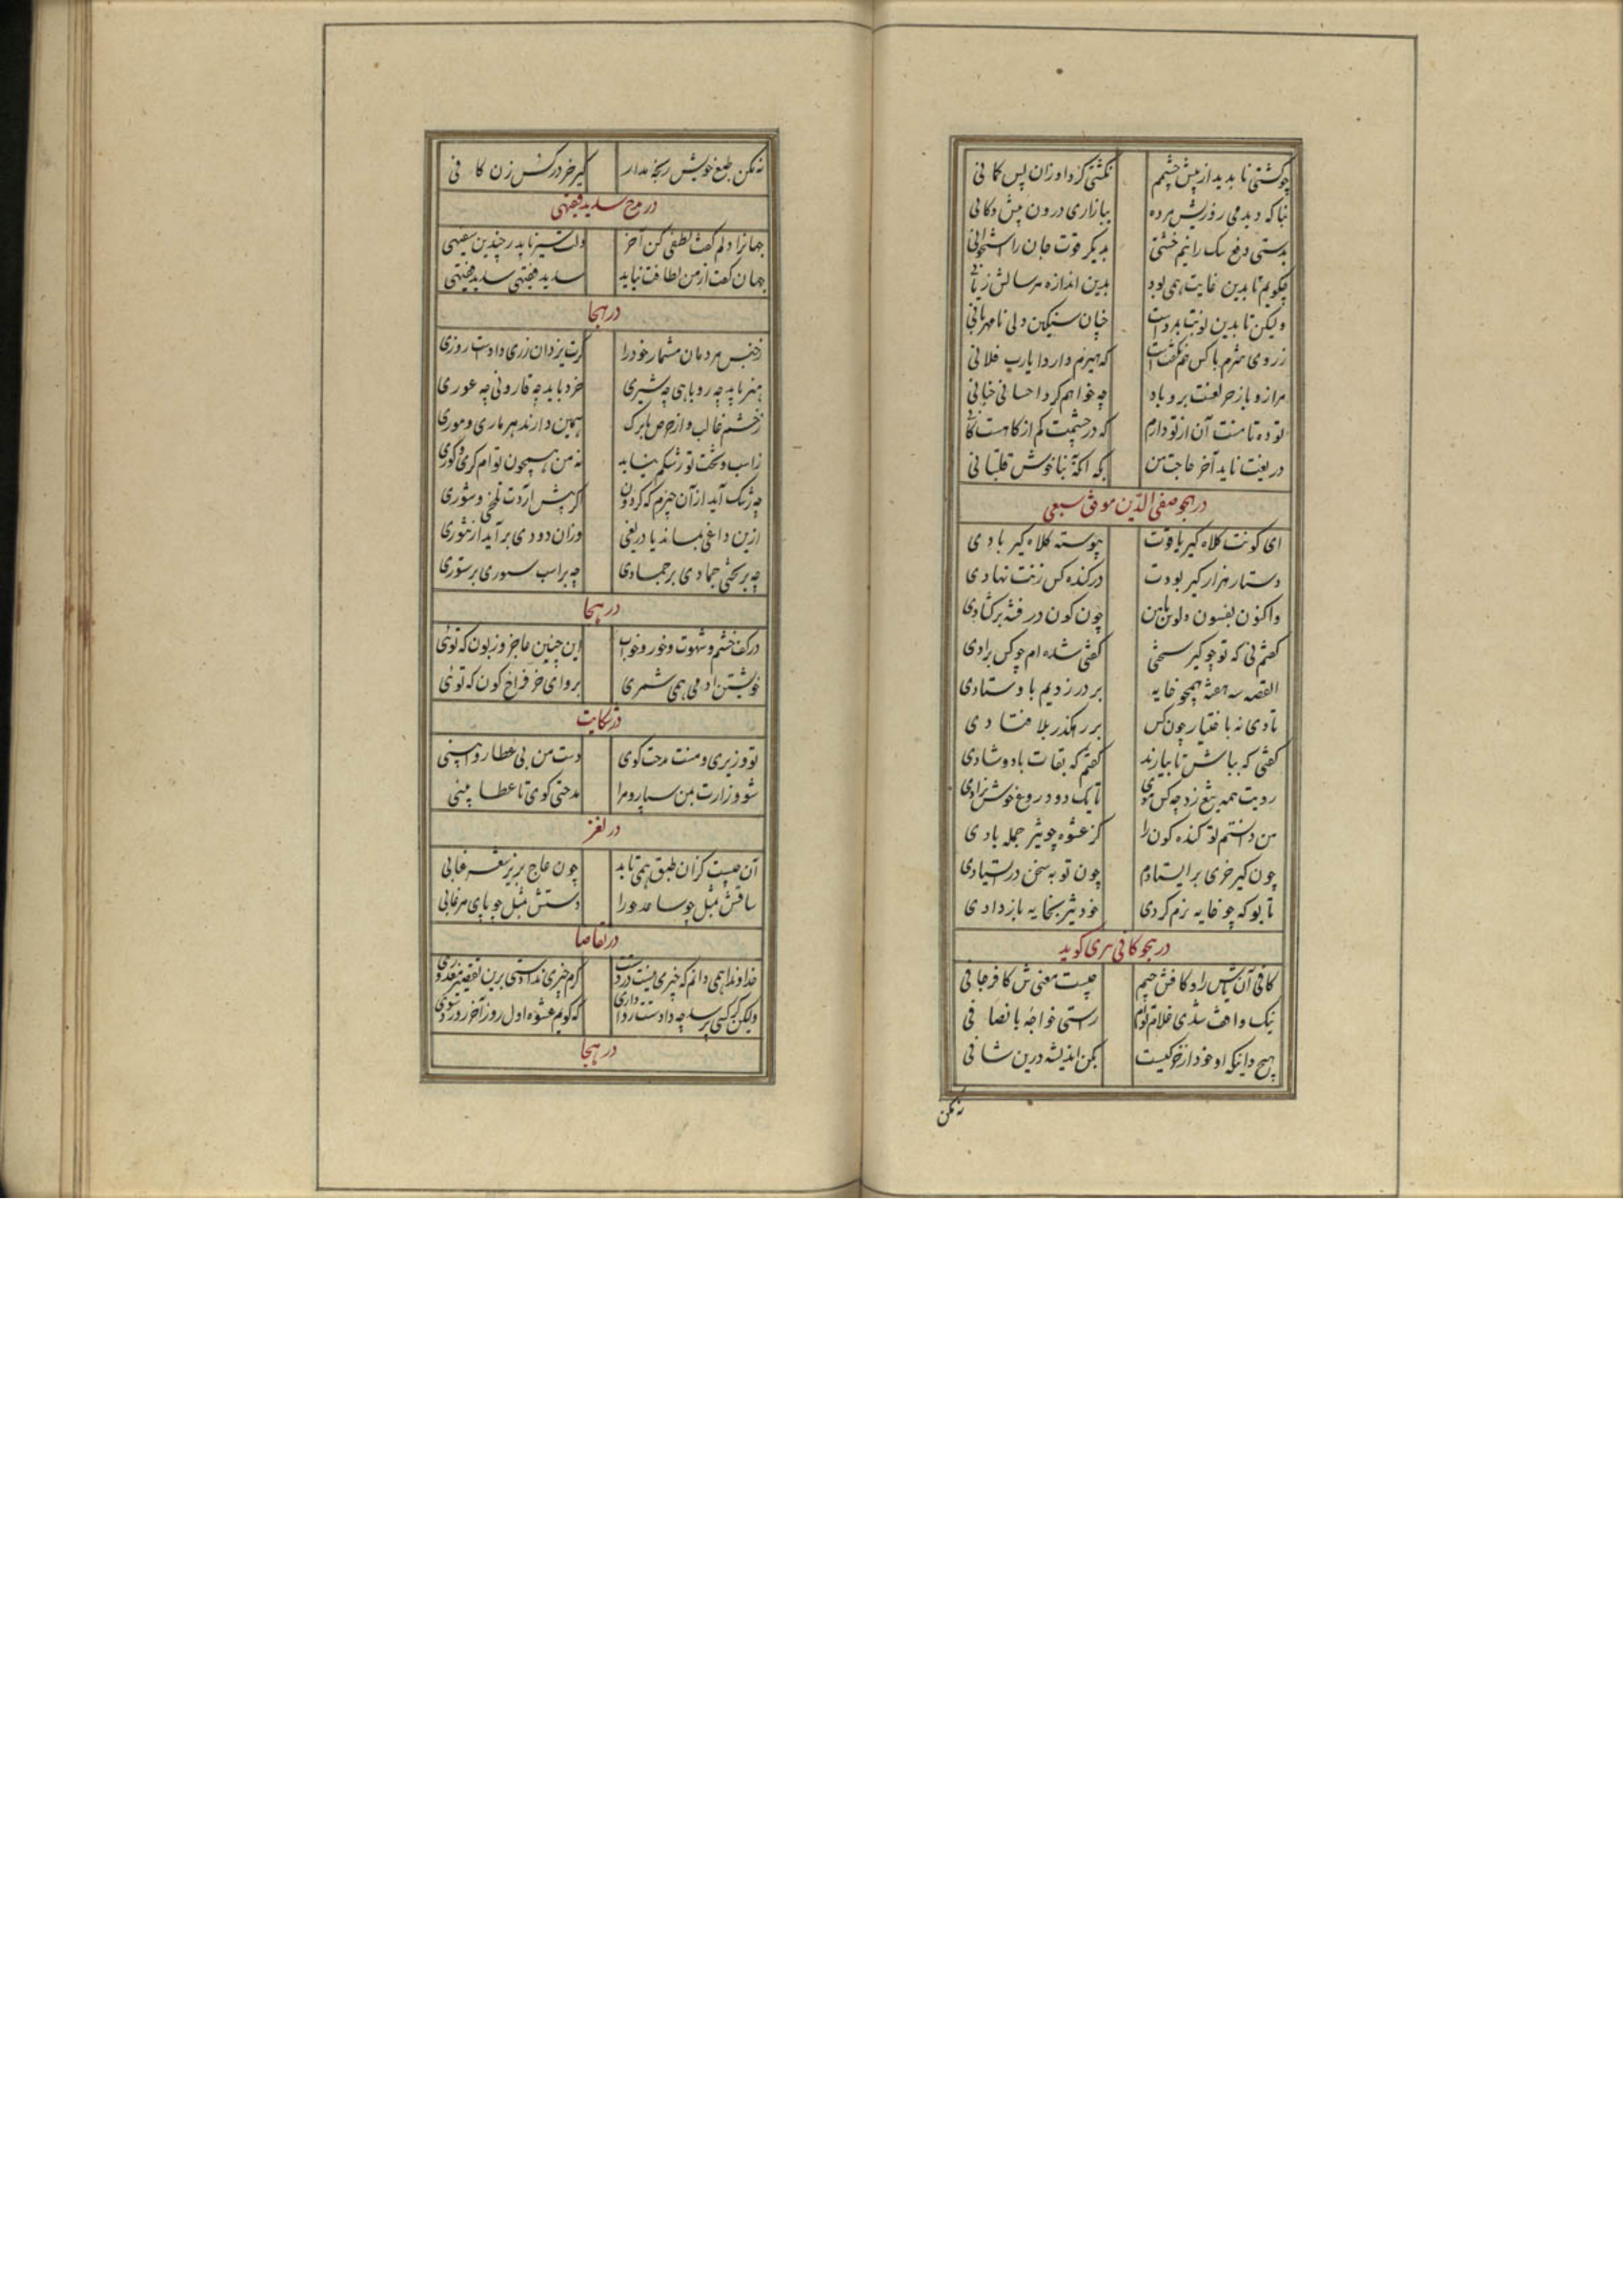 چو گشتی ناپدید از پیش چشمم نگشتی گرد او زان پس کانی
بنا که دیدمی روزیش مرده ببازاری درون پیش دکانی
بدستی دفع سگ را نیم خشتی بدیگر قوت جان را استخوانی
چگویم تا بدین غایت همی بود بدین اندازه هر سالش زیانی
ولیکن تا بدین نوبت بدست چنان سنگین دلی نامهربانی
ز روی هنرم با کس نگفتست که هیزم دارد یارب فلانی
مرا زو باز خر لعنت برو باد چه خواهم کرد احسانی چنانی
تو ده تا منت آن از تو دارم که در چشمت کم از کاهست کانی
دریغت ناید آخر حاجت من بکه اکنه بناخوش قلتبانی
در هجو صفی الدین موفق سبعی
ای کونت کلاه کیر یافوت پیوسته کلاه کیر بادی
دستار هزار کیر بودت در کنده کس زنت نهادی
واکنون بفسون و لوس باین چون کون در فتنه برگشادی
گفتم نی که تو چو کیر سختی گفتی شده‌ام چو کس رادی
القصه سه هفته همچو خایه بر در زدیم با وستادی
تا دی نه باختیار چون کس بر رهگذر بلا فتادی
گفتی که بباش تا بیارند گفتم که بقات باد و شادی
ریت همه تیغ زد چه کس موی تا یک دو دروغ خوش بزادی
من دانستم تو کنده کون را کز عشوه چو تیز جمله بادی
چون کیر خری بر ایستادم چون تو به سخن در ایستادی
تا بو که چو خایه نرم کردی خود تیز بخایه باز دادی
در هجو کافی هری گوید
کافی آن پیش راد کافش جیم چیست معنی‌ش کافر جافی
نیک واقف شدی غلام توام راستی خواجهٔ بانصافی
هیچ دانی که او خود از خر کیست بکن اندیشه درین شافی
نه مکن
نه مکن طبع خویش رنجه مدار کیر خر در کس زن کافی
در مدح سدید فقیهی
جهان را دلم گفت لطفی کن آخر دلت سیر ناید ز چندین سفیهی
جهان گفت از من لطافت نیاید سدید فقیهی سدید فقیهی
در هجا
ز جنس مردمان مشمار خود را گرت یزدان زری دادست روزی
هنر باید چه روباهی چه شیری خرد باید چه قارونی چه عوری
ز خشم غالب و از حرص بابرک همین دارند هر ماری و موری
ز اسب و تخت تو رشکم نیاید نه من همچون توام کری و کوری
چه رشک آید از آن چیزم که گردون گر پیش آردت تلخی و شوری
ازین داغی بماند یا دریغی وزان دودی برآید از تنوری
چه بر تختی جمادی بر جمادی چه بر اسب ستوری بر ستوری
در هجا
در کف خشم و شهوت و خور و خواب این چنین عاجز و زبون که توئی
خویشتن آدمی همی شمری برو ای خر فراخ کون که توئی
در شکایت
تو وزیری و منت مدحت گوی دست من بی عطا روا بینی
شو وزارت بمن سپار و مرا مدحتی گوی تا عطا بینی
در لغز
آن چیست کز آن طبق همی تابد چون عاج بزیر شعر عنابی
ساقش بمثل چو ساعد حورا دستش بمثل چو پای مرغابی
در تقاضا
خداوندا همی دانم که چیزی نیست در دستت گرم چیزی ندادستی برین تقصیر معذوری
ولیکن گر کسی پرسد چه دادستت روا داری که گویم عشوه اول روز آخر روز دستوری
در هجا